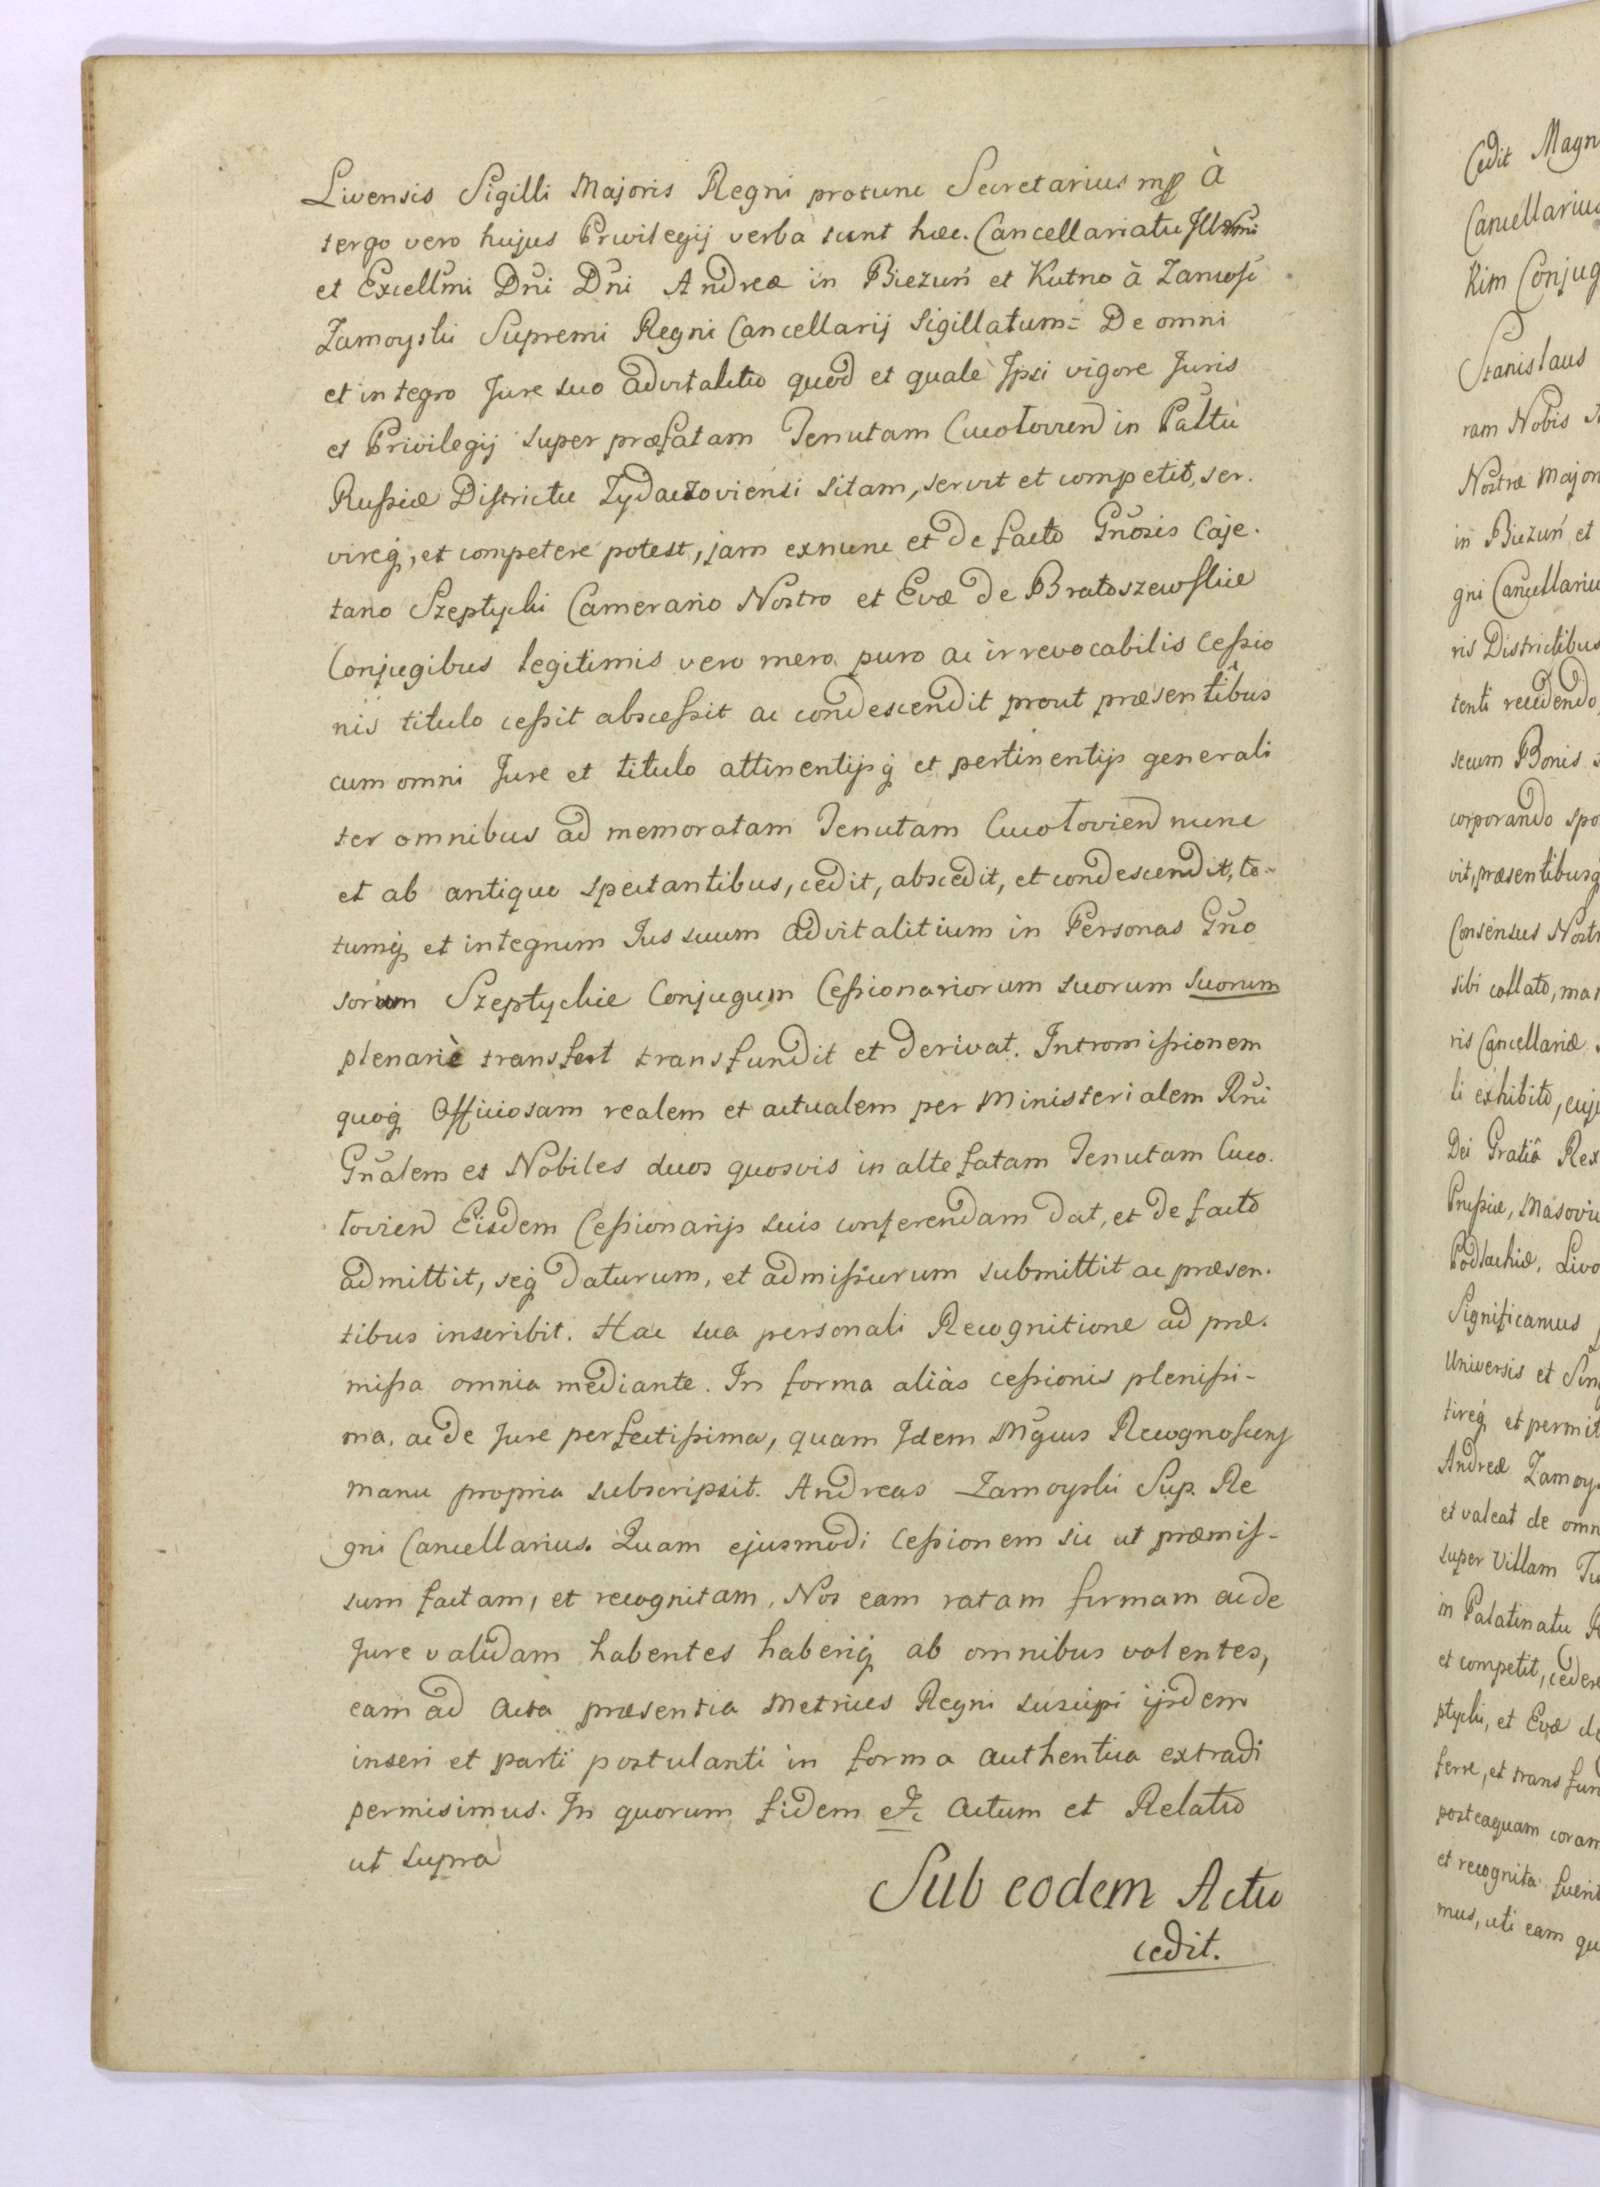 Livensis Sigilli Majoris Regni protunc Secretarius mp À
tergo vero hujus Privilegij verba sunt hæc. Cancellariatu Illrmi
et Excellmi Dni Dni Andreæ in Bieżuń et Kutno à Zamość
Zamoyski Supremi Regni Cancellarij Sigillatum = De omni
et integro Jure suo advitalitio quod et quale Ipsi vigore Juris
et Privilegij super præfatam Tenutam Cucołovien in Paltu
Russiæ Districtu Zydaczoviensi sitam, servit et competit, ser.
vireq, et competere potest, jam exnunc et de facto Gnosis Caje.
tano Szeptycki Camerario Nostro et Evæ de Bratoszewskie
Conjugibus legitimis vero mero puro ac irrevocabilis Cessio
nis titulo cessit abscessit ac condescendit prout præsentibus
cum omni Jure et titulo attinentijsq et pertinentijs generali
ter omnibus ad memoratam Tenutam Cucołovien nunc
et ab antiquo spectantibus, cedit, abscedit, et condescendit, to-
tumq et integrum Jus suum advitalitium in Personas Gno
sorum Szeptyckie Conjugum Cessionariorum suorum suorum
plenariè transfert transfundit et derivat. Intromissionem
quoq Officiosam realem et actualem per Ministerialem Rni
Gnalem et Nobiles duos quosvis in alte fatam Tenutam Cuco.
łovien Eisdem Cessionarijs suis conferendam dat, et de facto
admittit, seq daturum, et admissurum submittit ac præsen.
tibus inscribit. Hac sua personali Recognitione ad præ.
missa omnia mediante. In forma aliàs cessionis plenissi-
ma, ac de Jure perfectissima, quam Idem Mgcus Recognoscens
manu propria subscripsit. Andreas Zamoyski Sup. Re
gni Cancellarius. Quam ejusmodi Cessionem sic ut præmis-
sum factam, et recognitam, Nos eam ratam firmam ac de
Jure validam habentes haberiq ab omnibus volentes,
eam ad Acta præsentia Metrices Regni suscipi ijsdem
inseri et parti postulanti in forma authentica extradi
permisimus. In quorum fidem etc Actum et Relatio
ut suprà
Sub eodem Actu
cedit.
Cedit Magn
Cancellarius
Kim Conjug
Stanislaus
ram Nobis
Nostræ Major
in Bieżuń et
gni Cancellariu
ris Districtibus
tenti recedendo,
secum Bonis
corporando spo
vit, præsentibusq
Consensus Nostr
sibi collato, man
ris Cancellariæ
li exhibito, cuj
Dei Gratiâ Rex
Prussiæ, Masovi
Podlachiæ, Livo
Significamus
Universis et Sin
tireq et permit
Andreæ Zamoys
et valeat de omn
super Villam
in Palatinatu R
et competit, cedere
ptycki, et Evæ de
ferre, et transfun
posteaquam coram
et recognita fuerit
mus, uti eam qu